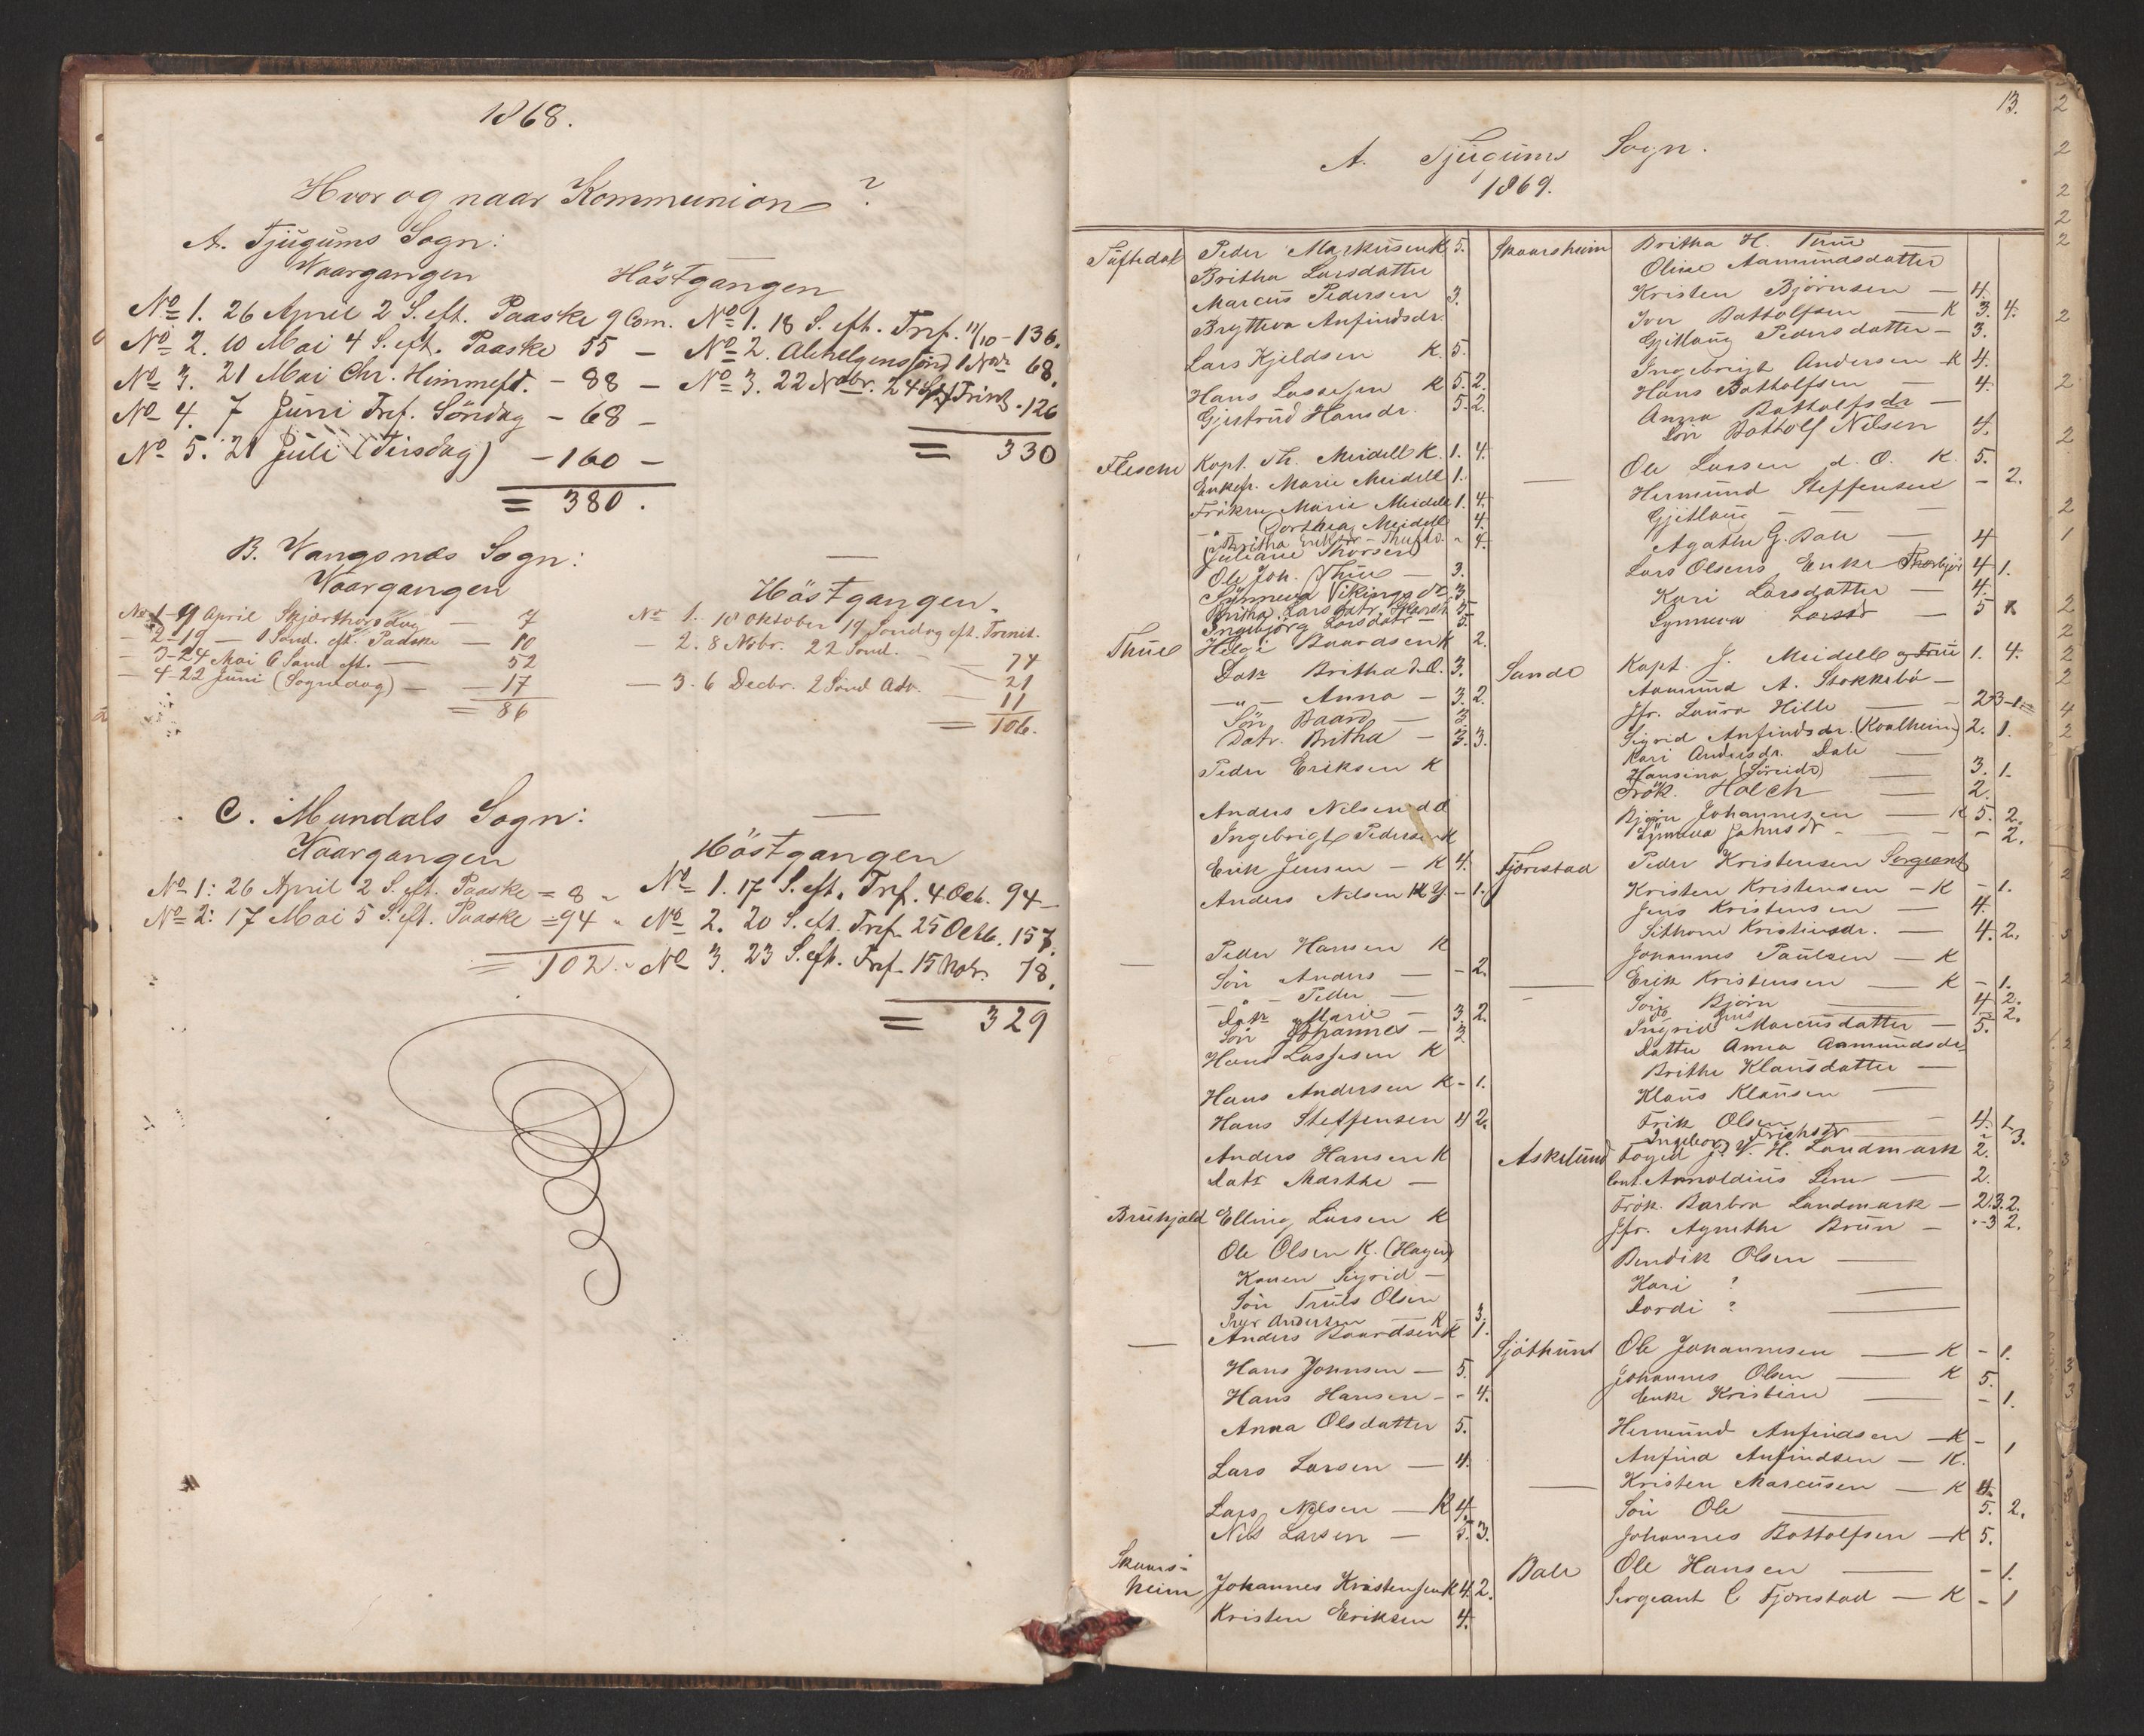 1868.
Hvor og naar Kommunion?
A. Tjugums Sogn:
Vaargangen
No 1. 26 April 2 S. eft. Paaske 9 Com.
No 2. 10 Mai 4 S. eft. Paaske 55 —
No 3. 21 Mai Chr. Himmelf. - 88 —
No 4. 7 Juni Tref. Söndag - 68 —
No 5. 21 Juli (Tirsdag) - 160 —
= 380.
Höstgangen
No 1. 18 S. eft. Tref. 11/10 - 136.
No 2. Alehelgenssönd 1 Nov. 68.
No 3. 22 Nobr. 24 S. eft Trinit. 126
= 330
B. Vangsnes Sogn:
Vaargangen
No 1 - 9 April Skjærthorsdag — 7
— 2 - 19 — 1 Sönd. eft. Paaske — 10
— 3 - 24 Mai 6 Sönd eft. — 52
— 4 - 22 Juni (Sognedag) — 17
= 86
Höstgangen.
No 1. 18 Oktober 19 Söndag eft. Trinit. 74
— 2. 8 Nobr. 22 Sönd. — 21
— 3. 6 Decbr. 2 Sönd Adv. 11
= 106.
C. Mundals Sogn:
Vaargangen
No 1: 26 April 2 S. eft. Paaske = 8 "
No 2: 17 Mai 5 S. eft. Paaske = 94 "
= 102.
Höstgangen
No 1. 17 S. eft. Tref. 4 Oct. 94 —
No 2. 20 S. eft. Tref. 25 Octb. 157.
No 3. 23 S. eft. Tref. 15 Nobr. 78.
= 329
13.
A. Tjugums Sogn.
1869.
Tuftedal Peder Markusen K 5.
Britha Larsdatter
Marcus Pedersen 3.
Brytteva Anfindsdr.
Lars Kjeldsen K. 5.
Hans Lassesen K 5. 2.
Gjertrud Hansdr. 5. 2.
Flesche Kapt. Th. Meidell K. 1. 4.
Enkefr. Marie Meidell 1.
Fröken Marie Meidell 1. 4.
— " — Dorthea Meidell 4.
Juliane Thorsen
Ole Joh. Thue — 3.
Synneva Vikingsdr. 3
Britha Larsdatr. Skarsh. 5
Ingebjörg Larsdatr — 5.
Thue Helge Baardsen K 2.
Datr Britha d. O. 3.
— " — Anna — 3. 2.
Sön Baard — 3.
Datr. Britha — 3. 3.
Peder Eriksen K
Anders Nilsen d. æ
Ingebrigt Pedersen K
Erik Jensen — K 4.
Anders Nilsen K d. Y. - 1.
— Peder Hansen K
Sön Anders — - 2.
— " — Peder —
Datr Marie — 3. 2.
Sön Johannes — 3
Hans Lassesen K
Hans Andersen K - 1.
Hans Steffensen 4 2.
Anders Hansen K
Datr Marthe —
Brüekjæld Elling Larsen K
Ole Olsen K. (Hagen)
Konen Sigrid —
Sön Truls Olsen
Iver Andersen K - 3.
— Anders Baardsen K 1.
Hans Johnsen — 5.
Hans Hansen - - 4.
Anna Olsdatter 5.
Lars Larsen — 4.
Lars Nilsen — K 4.
Nils Larsen — 5. 3.
Skaars-
heim Johannes Kristensen K 4. 2.
Kristen Eriksen 4.
Skaarsheim Britha H. Thue —
Oline Aamundsdatter
Kristen Björnsen — 4.
Iver Bottolfsen — K 3. 4.
Gjetlaug Pedersdatter — 3.
Ingebrigt Andersen — K 4.
Hans Bottolfsen — 4.
Anna Bottolfsdr —
Sön Bottolf Nilsen 4.
— Ole Larsen d. O. K. 5.
Hermund Steffensen - 2.
Gjetlaug — —
Agathe G. Bale — 4
Lars Olsens Enke Thorbjör 4 1.
Kari Larsdatter — 4.
Synneva Larsdr — 5
Sande Kapt. J. Meidell og Frue 1. 4.
Aamund A. Stokkebö —
Jfr. Laura Hille — 2 3 - 1.
Sigrid Anfindsdr. (Kvalheim) 2. 1.
Kari Andersdr. Dale —
Hansina (Söreide) — 3. 1.
Frök. Holch — 2.
Björn Johannesen — K 5. 2.
Synneva Johnsdr - - 2.
Fjærestad Peder Kristensen Sergeant
Kristen Kristensen — K - 1.
Jens Kristensen — 4.
Sithone Kristensdr. — 4. 2.
Johannes Paulsen — K
— Erik Kristensen — K - 1.
Sön Björn — 4 2.
do Jens 2.
Ingrid Marcusdatter — 5.
Datter Anna Aamundsdr.
Brithe Klausdatter —
Klaus Klausen —
Erik Olsen — 4. 1.
Ingeborg Erichsdr — - 3.
Askelund Foged J. V. H. Landmark 2.
Cont. Arnoldius Lem — 2.
Frök. Barbra Landmark — 2. 3. 2.
Jfr. Agnethe Brun — - 3 2.
Bendik Olsen —
Kari ? —
Dordi ? —
Sjöthun Ole Johannesen — K - 1.
Johannes Olsen — K 5.
Enke Kristine — - 1.
Hermund Anfindsen — K - 1
Anfind Anfindsen — K.
— Kristen Marcusen — K 4.
Sön Ole — 5. 2.
Johannes Bottolfsen — K 5.
Bale Ole Hansen — - 1.
Sergeant C Fjærestad — K - 1